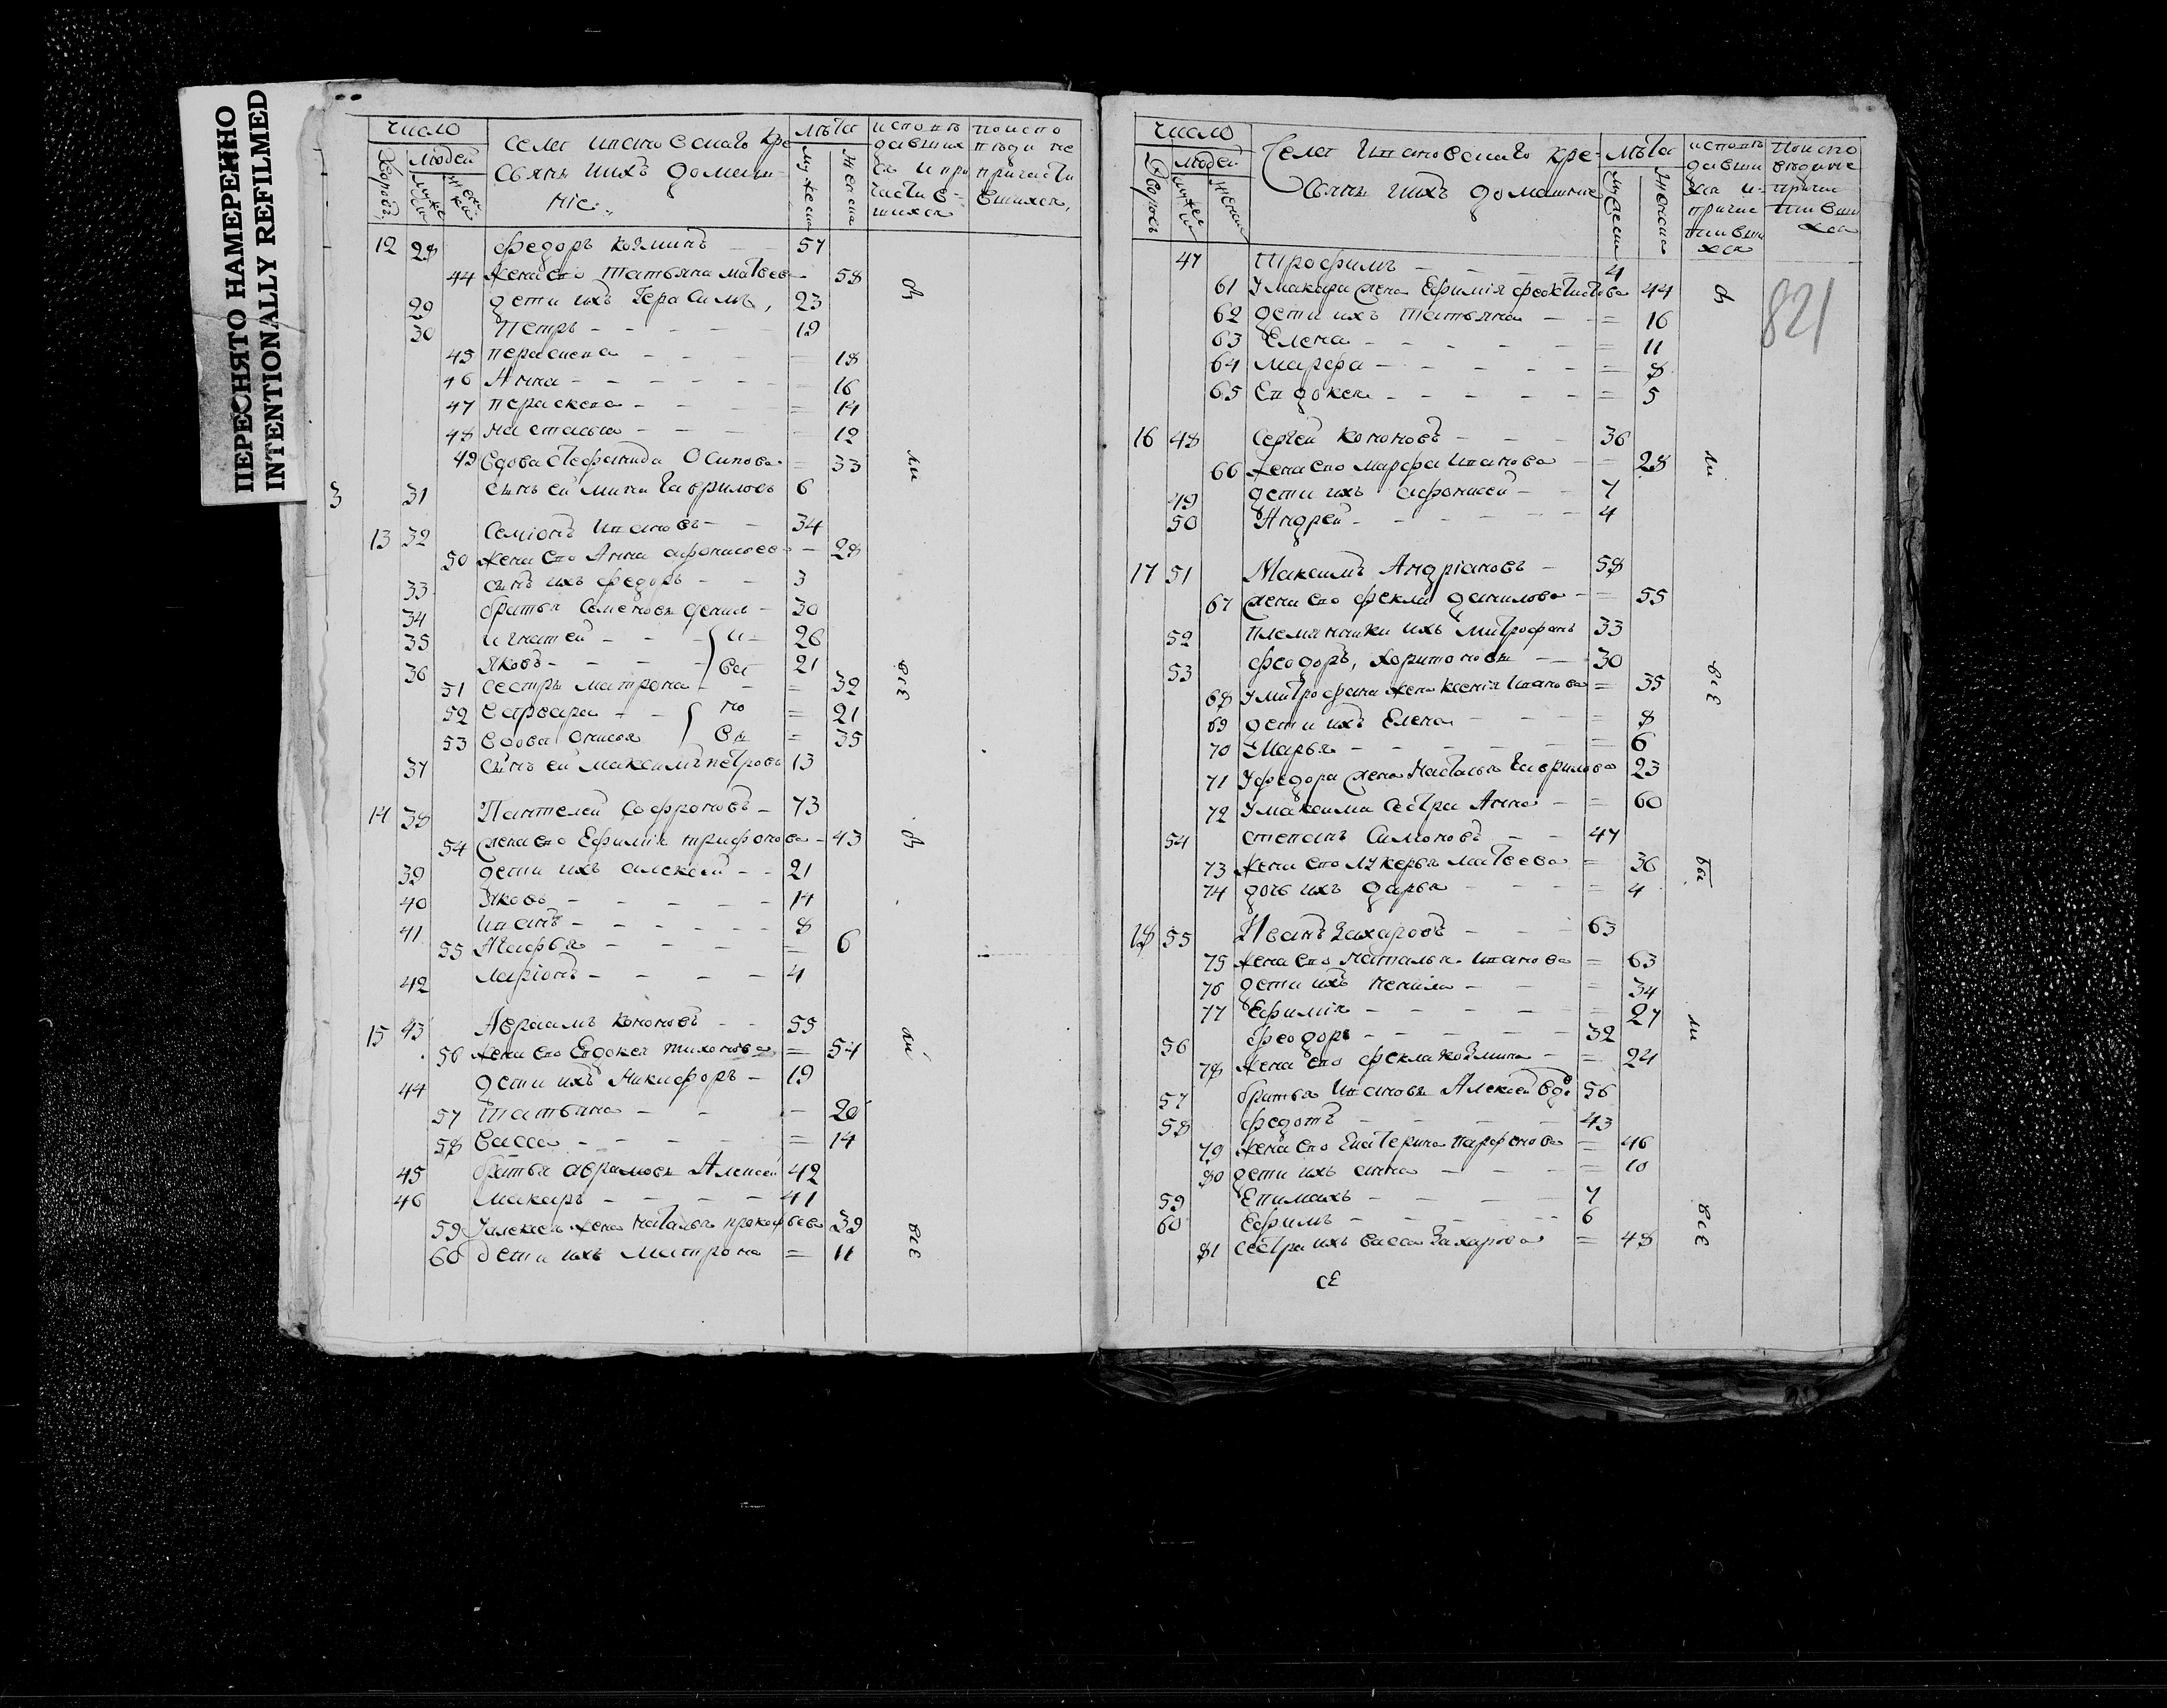 ПЕРЕСНЯТО НАМЕРЕННО
INTENTIONALLY REFILMED
число
людей
лѣта
села ивановскаго кре
стьянъ ихъ домаш
ніе
12 28 федоръ козминъ 57
44 жена его татьяна матвеева 58
29 дети ихъ герасимъ, 23
30 петръ 19
45 параскева 18
46 Анна 16
47 параскева 14
48 настасья 12
49 вдова стефанида Осипова 33
3 31 сынъ ей мина гавриловъ 6
13 32 Семіонъ ивановъ 34
50 жена его Анна афонасьева 28
33 сынъ ихъ федоръ 3
34 братья Семеновы данил 30
35 игнатей 26
36 яковъ 21
ива
51 сестры матрона 32
52 варвара 21
новы
53 вдова анисья 35
37 сынъ ей максимъ петровъ 13
14 38 Пантелей Софроновъ 73
54 жена его Ефимія трифонова 43
39 дети ихъ алексей 21
40 Яковъ 14
41 иванъ 8
55 Агафья 6
42 ларіонъ 4
15 43 Авраамъ кононовъ 55
56 жена его Евдокея тихонова 54
44 дети ихъ Никифоръ 19
57 татьяна 20
58 васса 14
45 братья аврамовы Алексей 42
46 макаръ 41
59 У алексея жена наталья прокофьева 39
60 дети ихъ матрона 11
число
людей
лѣта
Села Ивановскаго кре-
стьяны ихъ домашние
821
47 трофимъ 4
61 У макара жена Ефимія феоктистова 44
62 дети ихъ татьяна 16
63 Елена 11
64 марфа 8
65 Евдокея 5
16 48 Сергей кононовъ 36
66 жена его марфа иванова 28
49 дети ихъ афонасей 7
50 Андрей 4
17 51 Максимъ Андріановъ 58
67 жена его фекла данилова 55
52 племянники ихъ митрофанъ 33
53 феодоръ, харитоновы 30
68 У митрофана жена ксенія иванова 35
69 дети ихъ Елена 8
70 Марья 6
71 У федора жена Настасья гаврилова 23
72 У максима сестра Анна 60
54 степанъ Симоновъ 47
73 жена его лукерья матвеева 36
74 дочь ихъ дарья 4
18 55 Иванъ Захаровъ 63
75 жена его наталья иванова 63
76 дети ихъ ненила 34
77 Ефимія 27
56 феодоръ 32
78 жена его фекла козмина 24
57 братья ивановы Алексей вдо 56
58 федотъ 43
79 жена его Екатерина парфенова 46
80 дети ихъ анна 10
59 Епимахъ 7
60 Ефимъ 6
81 сестра ихъ васса Захарова 48